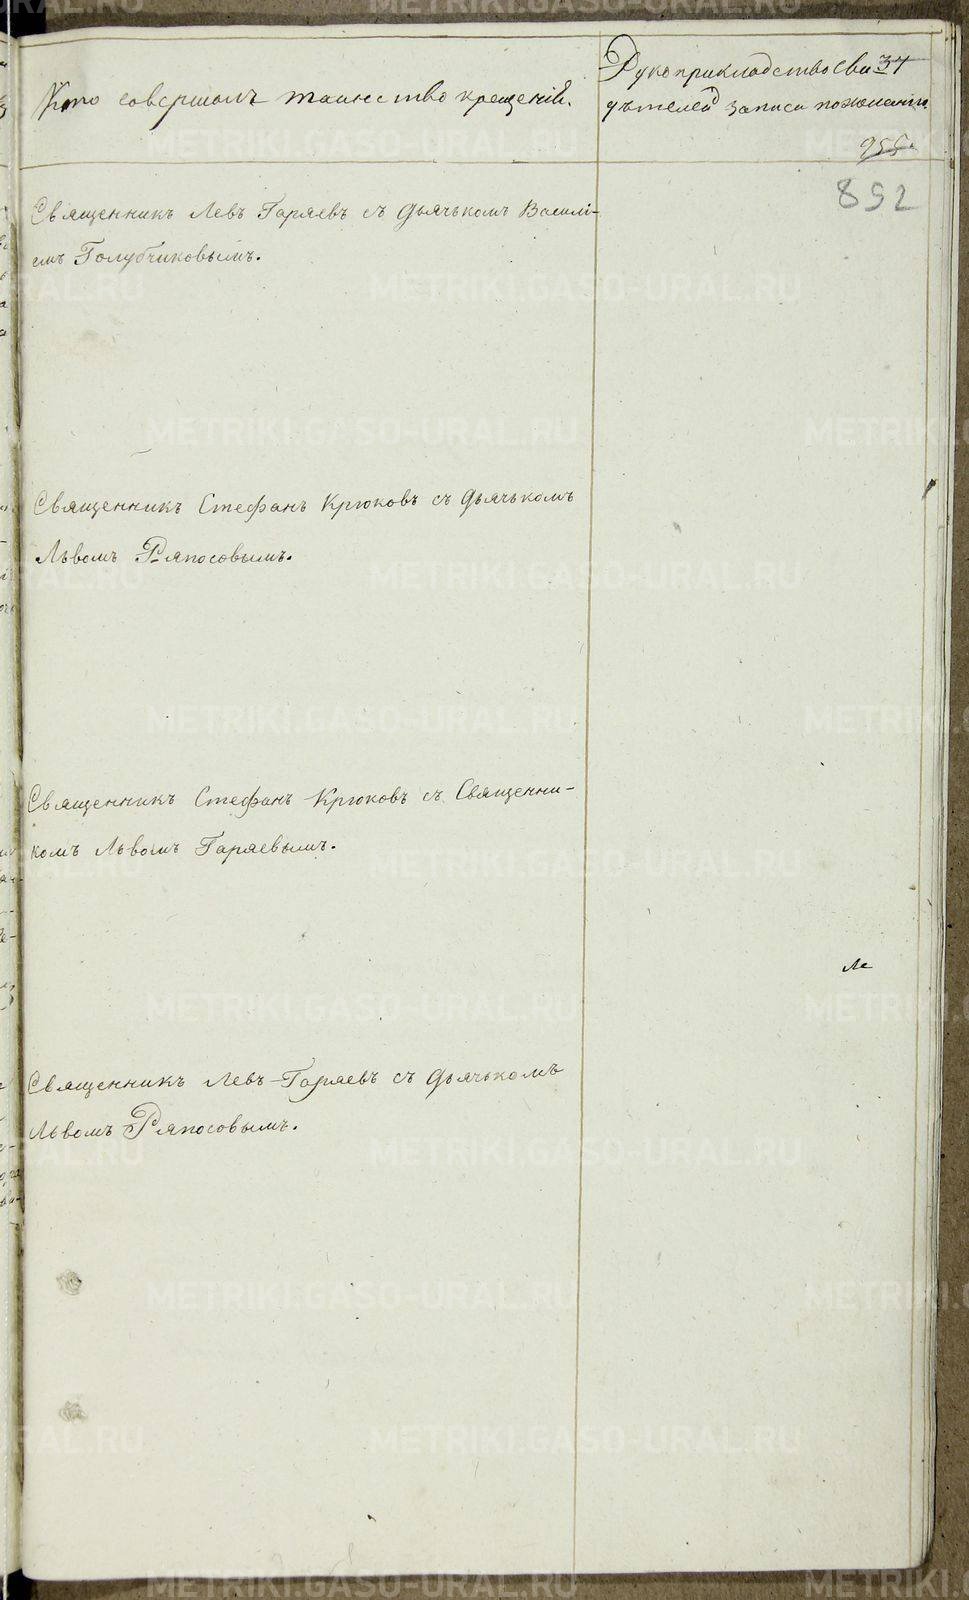 Кто совершалъ таинство крещенія.
Рукоприкладство сви
34
дѣтелей записи по желанію.
955.
892
Священникъ Левъ Гаряевъ съ дьячькомъ Василі-
емъ Голубчиковымъ.
Священникъ Стефанъ Крюковъ съ дьячькомъ
Львомъ Ряпосовымъ.
Священникъ Стефанъ Крюковъ съ Священни-
комъ Львомъ Гаряевымъ.
Священникъ Левъ Гаряевъ съ дьячькомъ
Львомъ Ряпосовымъ.
METRIKI.GASO-URAL.RU